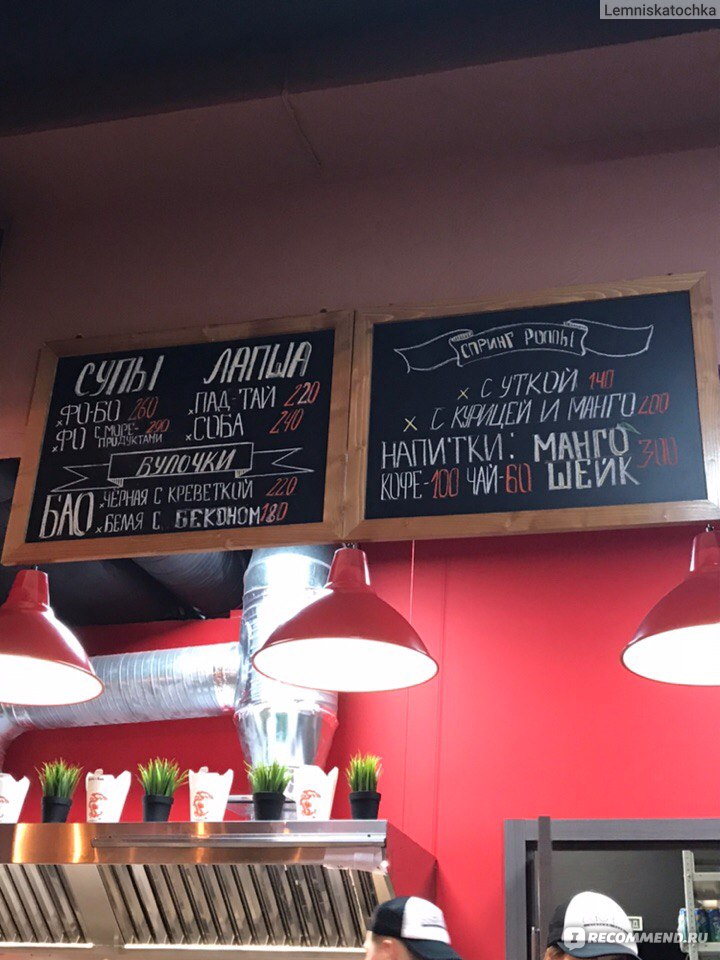 Lemniskatochka
СУПЫ ЛАПША
×ФО-БО 260 ×ПАД-ТАЙ 220
×ФО С МОРЕ-ПРОДУКТАМИ 290 ×СОБА 240
БУЛОЧКИ
БАО ×ЧЁРНАЯ С КРЕВЕТКОЙ 220
×БЕЛАЯ С БЕКОНОМ 180
СПРИНГ РОЛЛЫ
× С УТКОЙ 140
× С КУРИЦЕЙ И МАНГО 200
НАПИТКИ: МАНГО ШЕЙК 300
КОФЕ-100 ЧАЙ-60
IRECOMMEND.RU